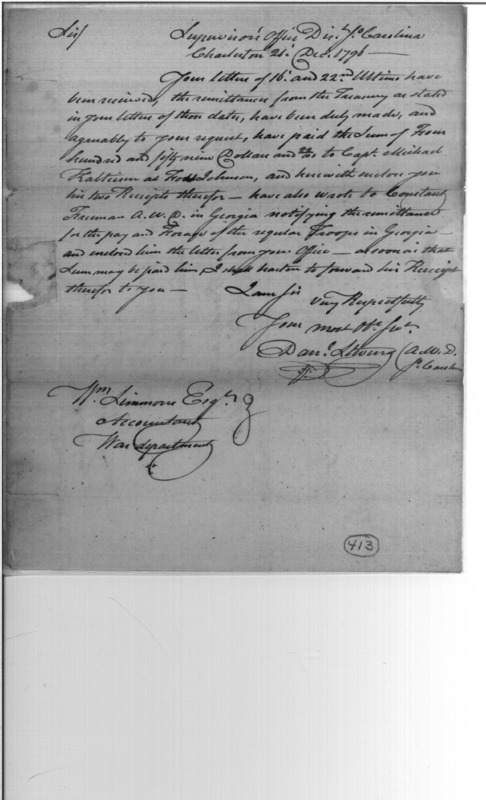 Sir/ Supervisor's Office Dist. So. Carolina
Charleston 21st Dec. 1796
Your letters of 16th and 22nd Ultimo have
been received, the remittances from the Treasury as stated
in your letters of those dates, have been duly made, and
agreeably to your request, have paid the Sum of Four
hundred and fifty nine Dollars and to Capt. Michael
Kalteisen at Fort Johnson, and herewith inclose you
his two Receipts therefor — have also wrote to Constant
Freeman A.W.D. in Georgia notifying the remittance
for the pay and Forage of the regular Troops in Georgia —
and inclosed him the letter from your Office — as soon as that
Sum may be paid him I shall hasten to forward his Receipt
therefor to you —
I am Sir
very Respectfully
Your most Ob. Servt.
Danl. Stevens A.W.D.
So. Carolina
Wm. Simmons Esqr.
Accountant
War department
413